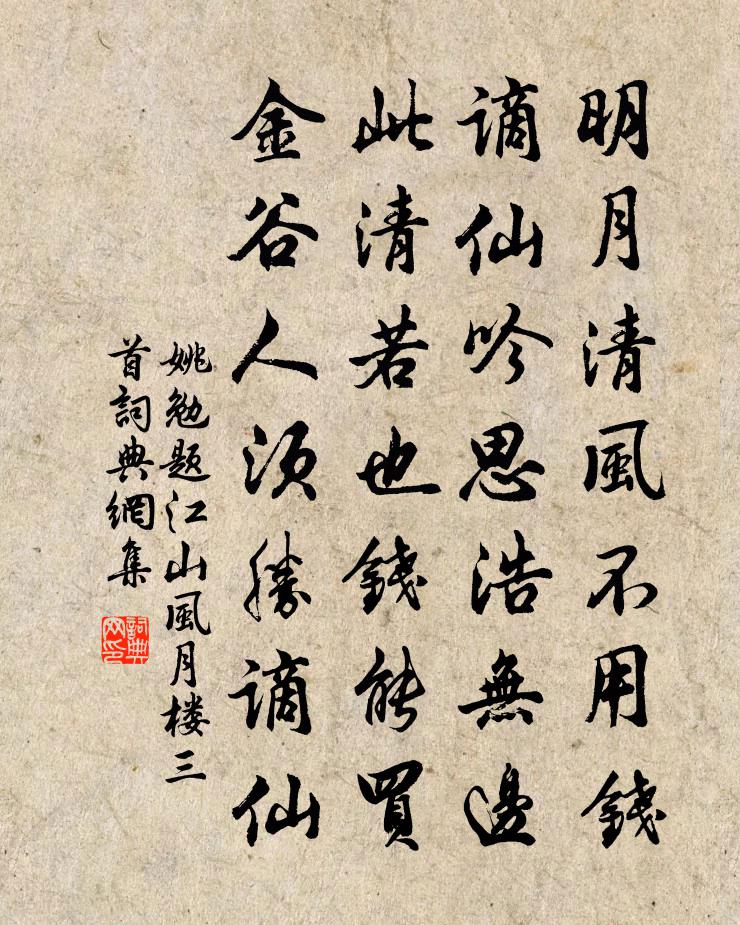 明月清風不用錢
謫仙吟思浩無邊
此清若也錢能買
金谷人須勝謫仙
姚勉題江山風月楼三
首詞典網集
詞典
网印